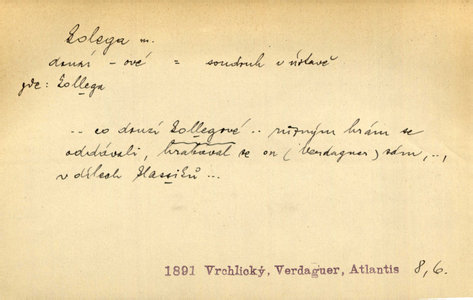 kolega m.
druzí - ové = soudruh v ústavě
zde: kollega
.. co druzí kollegové .. různým hrám se
oddávali, hrabával se on (Verdaguer) sám, ..,
v dílech klassiků ...
1891 Vrchlický, Verdaguer, Atlantis 8,6.